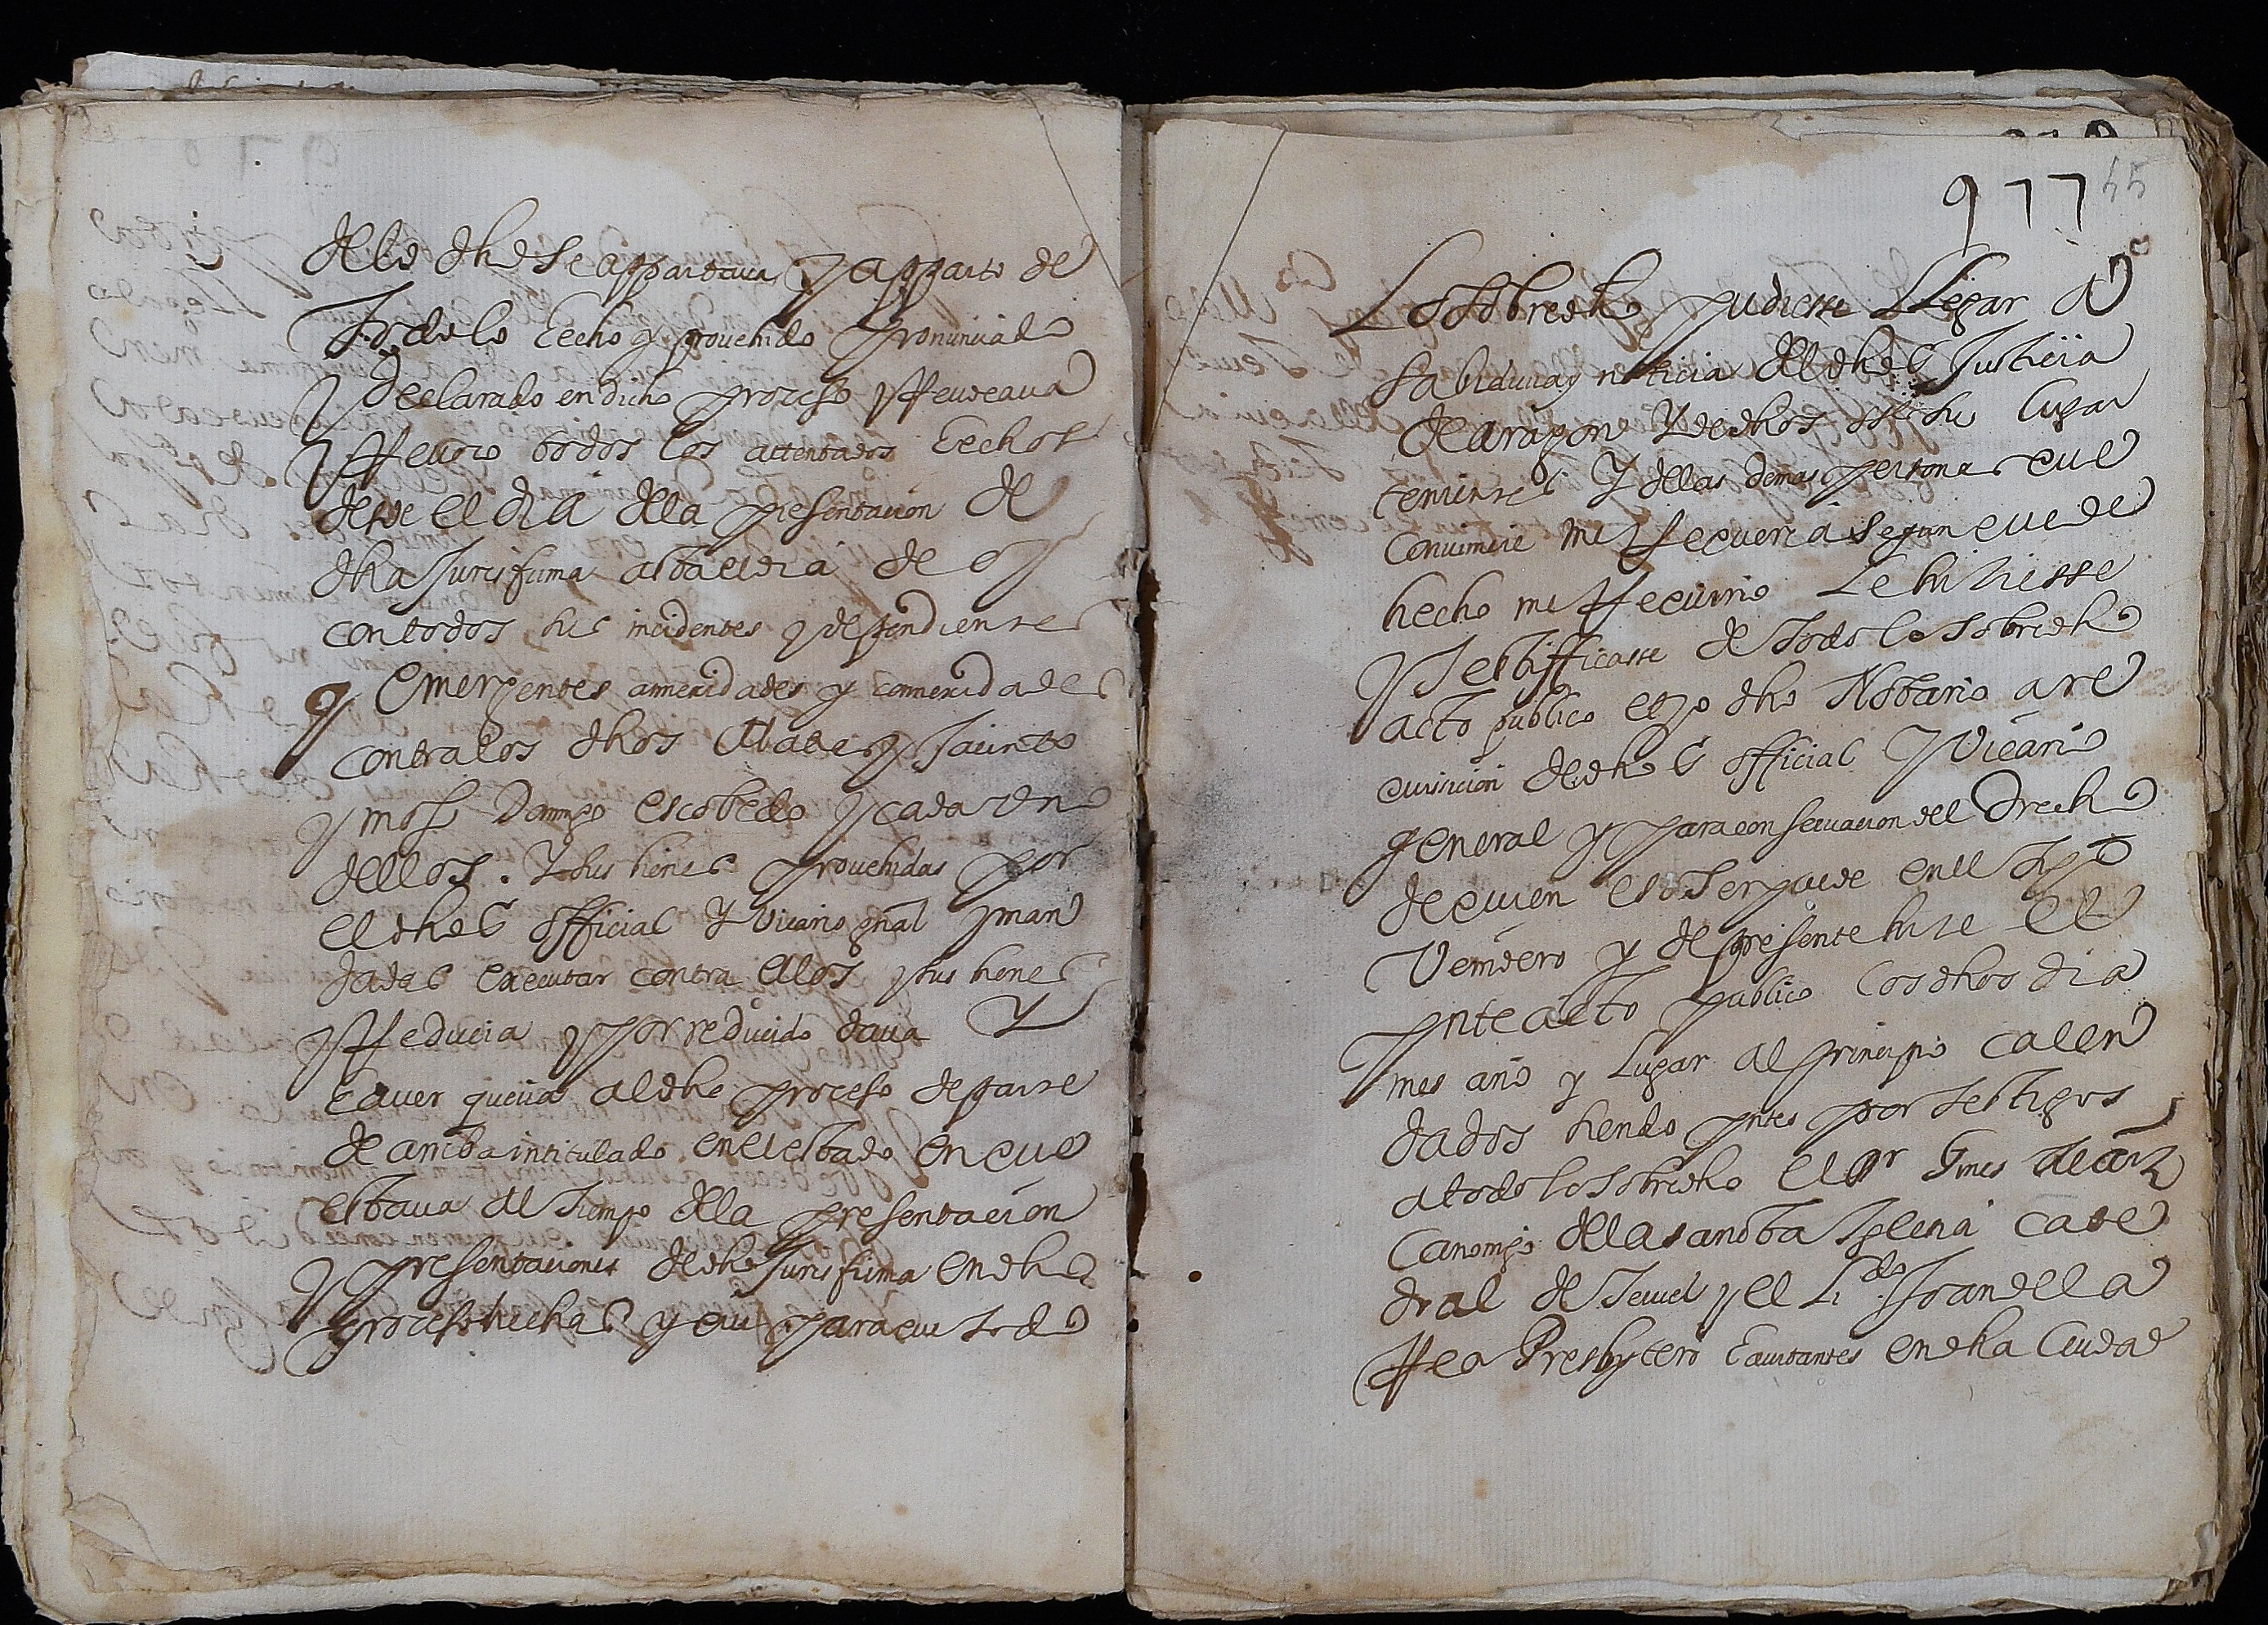 dello dho se appartaua y apparto de
Todo lo hecho y prouehido pronunciado
y declarado en dicho proceso y Reuocaua
y Reuoco todos los attentados hechos
desde el dia dela presentacion de
dha Jurisfirma
con todos sus incidentes y dependientes
y emergentes annexidades y connexidades
contra los dhos Abate y Jacinto
y mossen Domingo escobedo y cada vno
dellos. Y sus bienes prouehidas por
el dho S official Y Vicario gñal y man
dadas executar contra ellos y sus bienes
y Reducia y por reducido daua Y
hauer queria al dho proceso de parte
de arriba intitulado en el estado en que
estaua al Tiempo dela presentacion
y presentaciones de dha Jurisfirma en dho
proceso hechas y que para que todo
977 45
Lo sobredho pudiesse Llegar a
sabiduria y noticia del dho S Justicia
de aragon Y de dhos ss sus lugar
tenientes Y de las demas personas que
conuiniere me Requeria segun que de
hecho me Requirio Le hiziesse
y Testifficasse de Todo lo sobredho
acto publico et yo dho Notario a re
quisicion de dho S official y Vicario
general y para conseruacion del Drecho
de quien es o ser puede en el
Venidero y de presente hize el
pnte acto publico los dhos dia
mes año y Lugar al principio calen
dados siendo pntes por testigos
a todo lo sobredho el Dr Gines
Canonigo de la sancta Iglesia cate
dral de Teruel y el Lido Joan de la
Rea Presbytero hauitantes en dha Ciudad